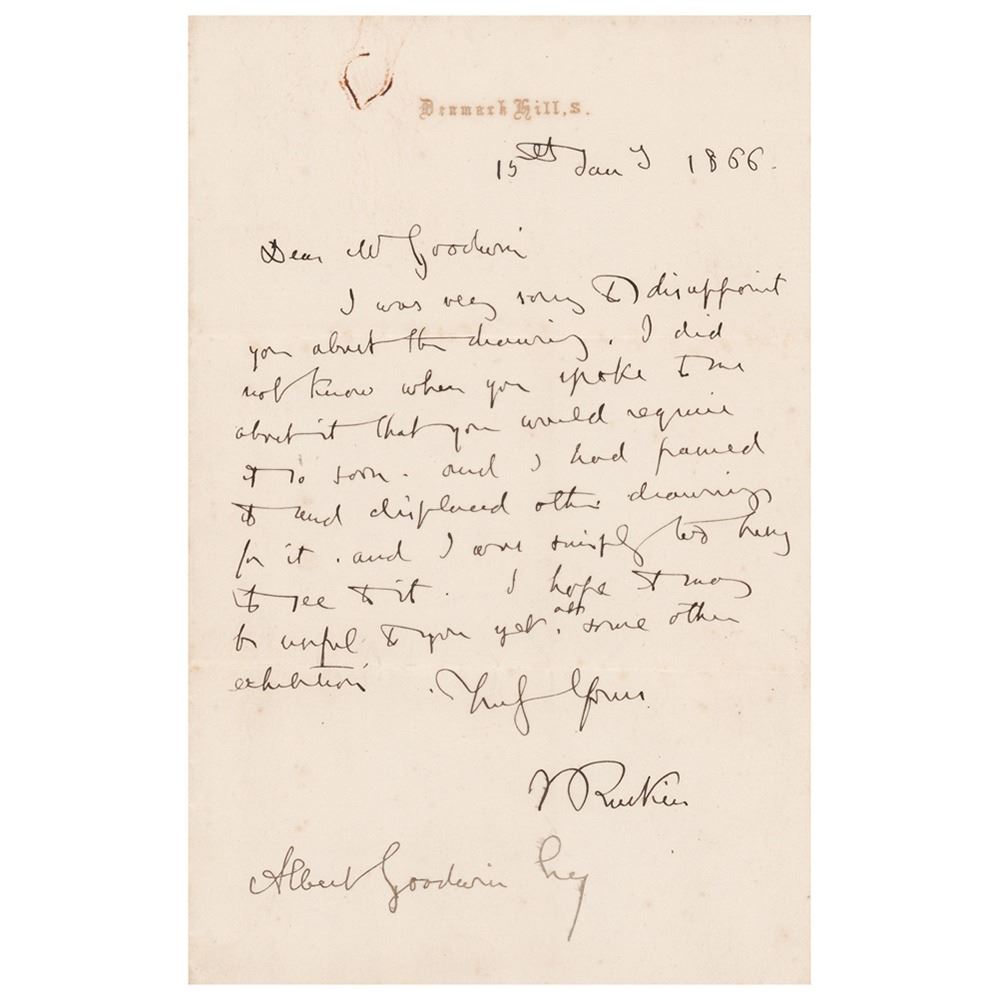 Denmark Hill, S.
15th Jany 1866.
Dear Mr Goodwin
I was very sorry to disappoint
you about the drawing. I did
not know when you spoke to me
about it that you would require
it so soon. and I had framed
it and displaced other drawings
for it. and I was simply too busy
to see to it. I hope it may
be useful to you yet, at some other
exhibition. Truly Yours
J Ruskin
Albert Goodwin Esq